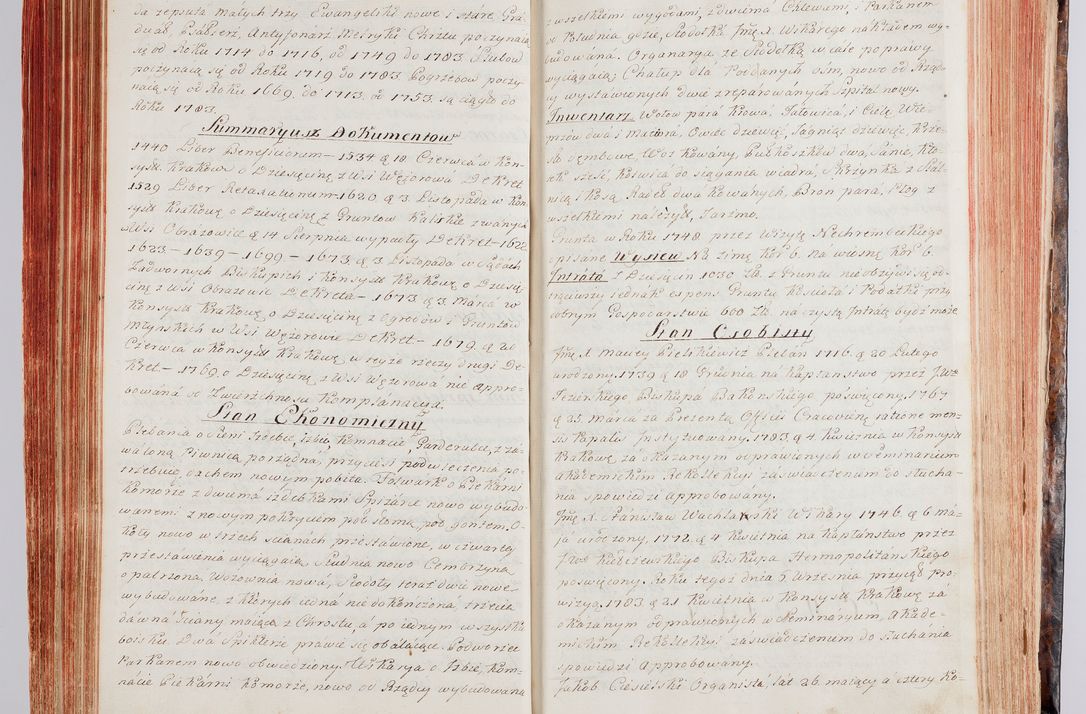 da zepsuta małych trzy. Ewangeliki nowe i stare, Gra-
duał, Psałterz, Antyfonarz Metryki Chrztu poczynaia
się od Roku 1714 do 1716, od 1749 do 1783 Slubow
poczynaią się od Roku 1719 do 1783 Pogrzebow poczy-
naią się od Roku 1669. do 1713, od 1753. są ciągło do
Roku 1783.
Summaryusz Dokumentow
1440 Liber Beneficiorum – 1534 d. 18 Czerwca w Kon-
systt. Krakow. o Dziesięcinę z Wsi Węzorowa Dekret
1529 Liber Retaxationum – 1620 d. 3 Listopada w Kon
systt Krakow. o Dziesięcinę z Gruntow Kalskie zwanych
w Wsi Obrazowice d. 14 Sierpnia wypadły Dekret – 1622
1623 – 1639 – 1699 – 1673 d. 3 Listopada w Sądach
Zadwornych Biskupich i Konsystt Krakow. o Dziesię-
cinę z Wsi Obrazowic Dekreta – 1673 d. 3. Marca w
Konsystt Krakow. o Dziesięcinę z Ogrodow i Gruntow
Młynskich w Wsi Węzorowie Dekret – 1679. d. 20
Czerwca w Konsystt Krakow. w teyże rzeczy drugi De-
kret – 1769. o Dziesięcinę z Wsi Węzorowa nie appro-
bowana od Zwierzchnosci Komplanacya.
Stan Ekonomiczny
Plebania o Sieni Izbie, Izbie, Komnacie, Garderobce, z za-
waloną Piwnicą porządna, przyciesi podwleczenia po-
trzebuie, dachem nowym pobita. Folwark o Piekarni
Komorze z dwuma izdebkami Spiżarce nowo wybudo-
wanemi z nowym pokryciem pod słomą, pod gontem. O-
koły nowo w trzech scianach przestawione, w czwartey
przestawienia wyciągaią, Studnia nowo Cembrzyną
opatrzona. Wozownia nowa, Stodoły teraz dwie nowe
wybudowane, z ktorych iedna nie dokończona, trzecia
dawna Sciany maiąca z Chrostu, a po iednym wszystkie
boisku. Dwa Spiklerze prawie się obalaiące. Podworzec
Parkanem nowo obwiedziony. Wikarya o Izbie, Kom-
nacie Piekarni Komorze, nowo od Rządcy wybudowana
z wszelkiemi wygodami, Dowema Chlewami, i Parkanem
od Południa gdzie, Stodołka Jmę X. Wikarego nakładem wy-
budowana. Organarya ze Stodołką w cale poprawy
wyciągaią; Chałup dla Poddanych ośm, nowo od Rząd-
cy wystawionych dwie zreparowanych Szpital nowy.
Inwentarz Wołow para Krowa, Jałowica, i Cielę, Wie-
przow dwa i Maciora, Owiec dziewięć, Jagniąt dziewięć, Krze-
seł Dembowe, Woz Kowany, Pułkoszkow dwa, Sanie, Kło-
dki sześć, Kosiwica do ciągania wiadra, Skrzynka z Stal-
nicą i Kosą, Radeł dwa Kowanych, Bron para, Pług z
wszelkiemi należytt. Jarzmo.
Grunta w Roku 1748 przez Wizytę Niechrembeckiego
opisane Wysiew Na zimę Kor 6. na wiosnę Kor 6.
Intrata z Dziesięcin 1030 Zł. z Gruntu nieobżywi się od-
trąciwszy iednak expens Gruntu, Kościoła i Podatki przy
dobrym Gospodarstwie 600 Zł. na czystą Intratę bydz może
Stan Osobisty
Jmę X. Maciey Pietkiewicz Pleban 1716. d. 20 Lutego
urodzony, 1739 d 18 Grudnia na Kapłanstwo przez Jwę
Jezierskiego Biskupa Bakońskiego poswięcony, 1767
d. 25. Marca za Prezentą Offcii Cracovien. ratione men-
sis Papalis Instytuowany. 1783. d 4 Kwietnia w Konsystt
Krakow. za okazanym odprawionych w Seminarium
Akademickim Rekollekcyi zaświadczeniem do słucha-
nia spowiedzi approbowany.
Jmę X. Stanisław Wachlarski Wikary 1746. d. 6 Ma-
ja urodzony, 1772. d. 4 Kwietnia na Kapłanstwo przez
Jwę Kiełczewskiego Biskupa Hermopolitańskiego
poswięcony. Roku tegoż dnia 5 Wrzesnia przyiął Pro-
wizyą, 1783 d. 21 Kwietnia w Konsystt Krakow. za
okazanym odprawionych w Seminaryum, Akade-
mickim Rekollekcyi zaświadczeniem do słuchania
spowiedzi approbowany.
Jakob Ciesielski Organista, lat 26. maiący a cztery Ko-